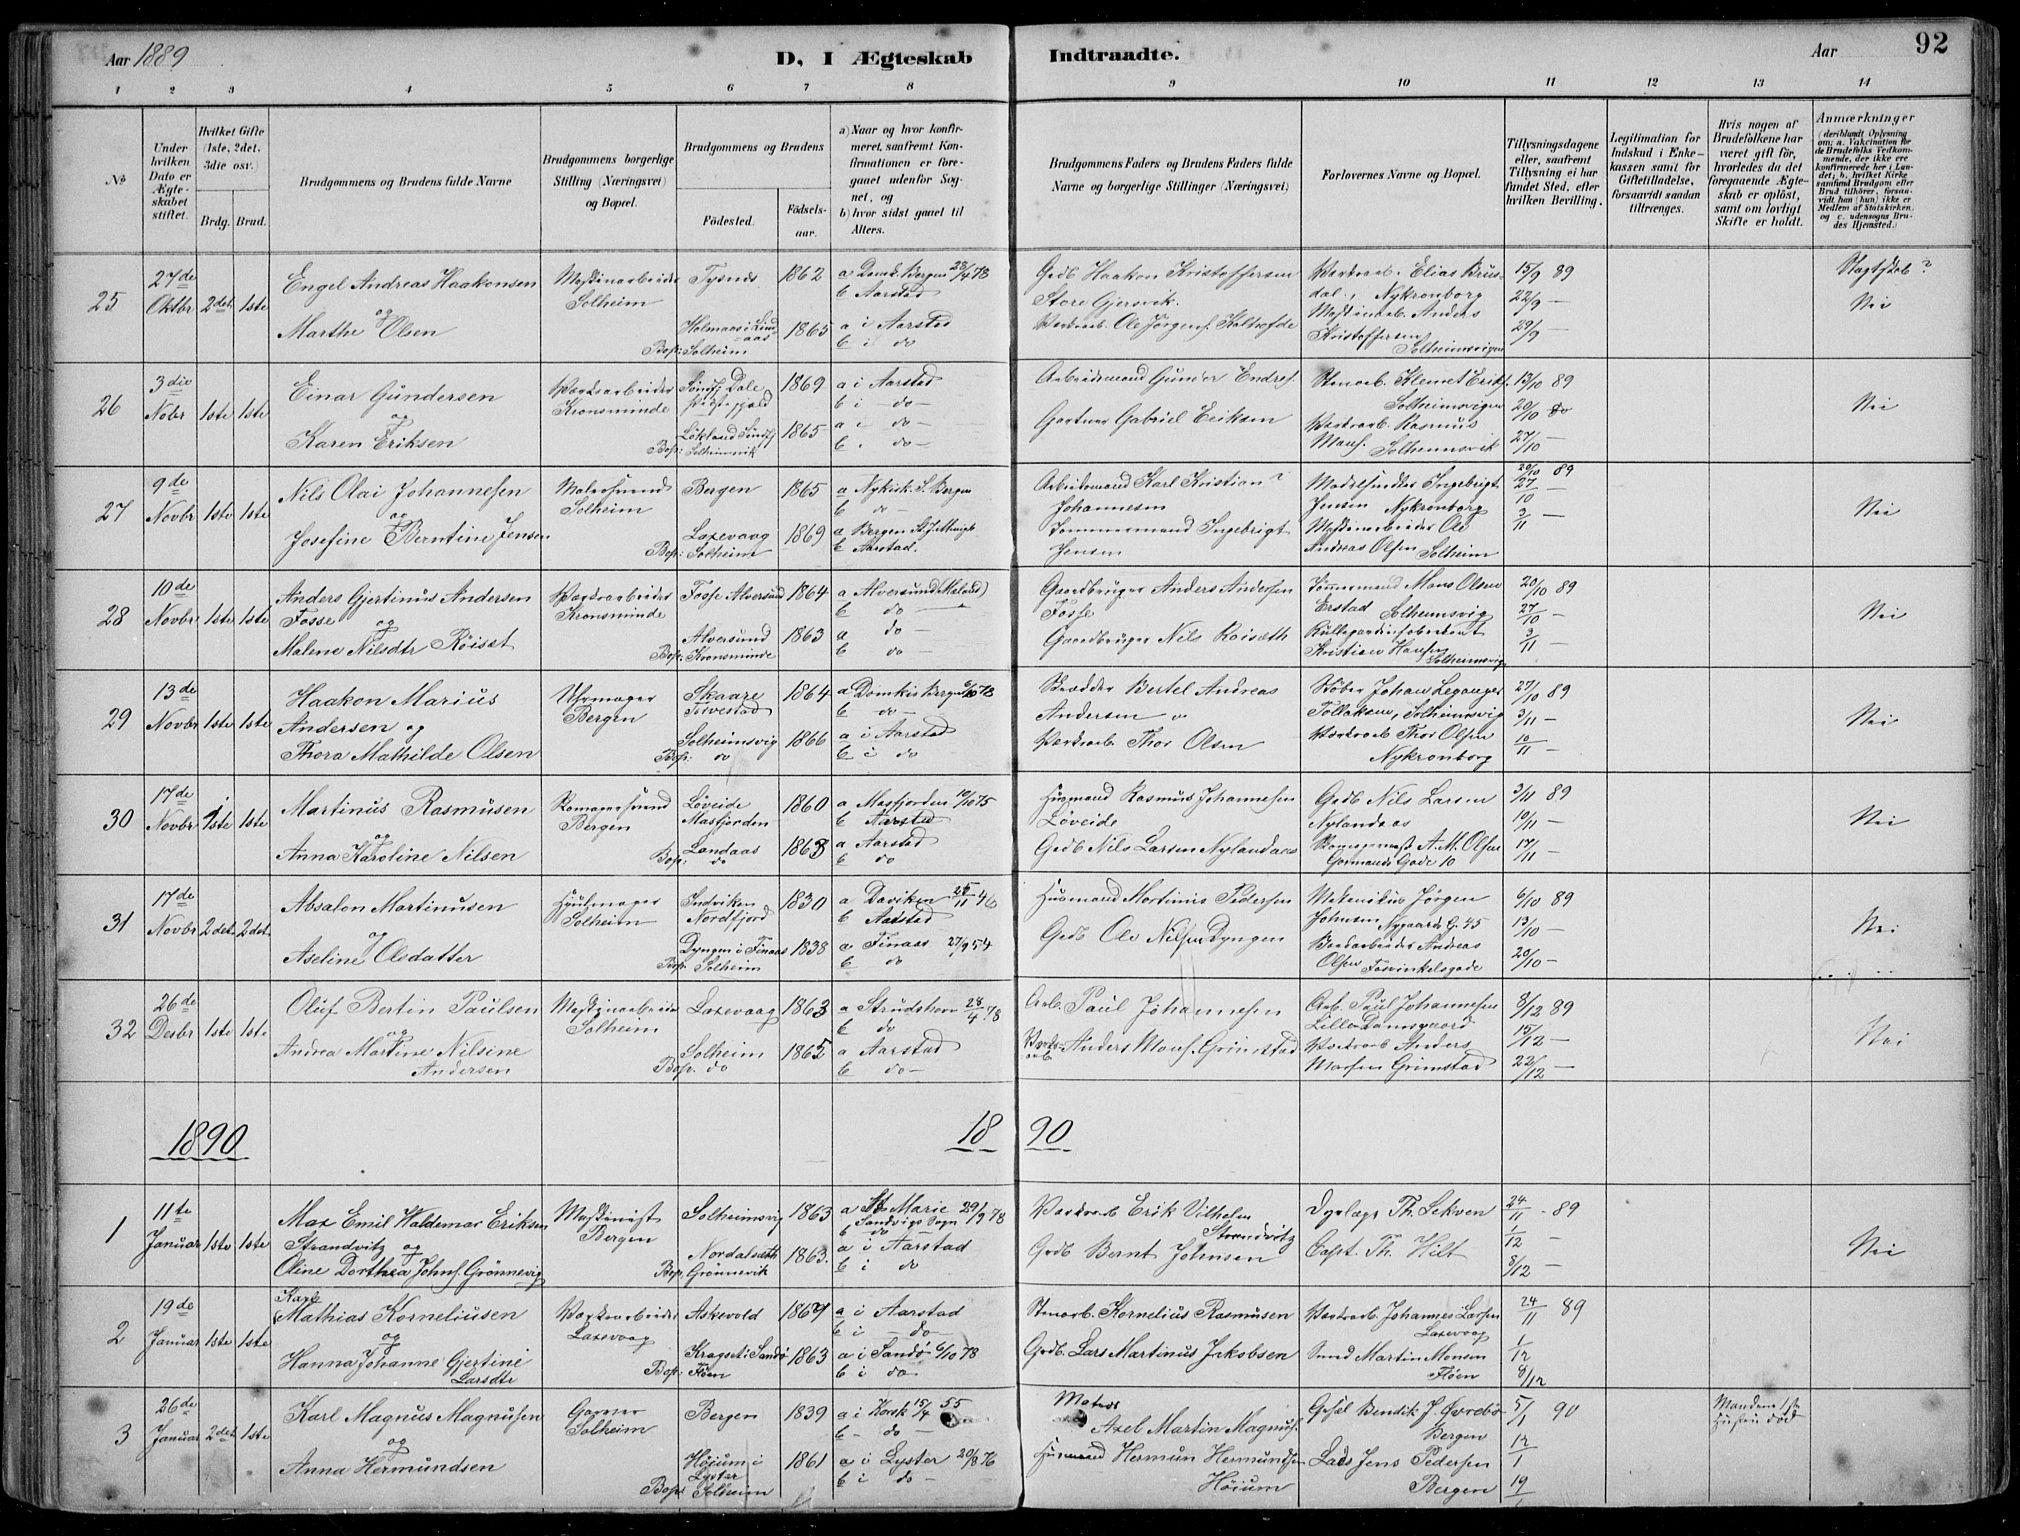 Aar 1889
D, I Ægteskab Indtraadte.
Aar 92
1 2 3 4 5 6 7 8 9 10 11 12 13 14
No
Under hvilken Dato er Ægteskabet stiftet.
Hvilket Gifte (1ste, 2det, 3die osv.)
Brdg. Brud.
Brudgommens og Brudens fulde Navne
Brudgommens borgerlige Stilling (Næringsvei) og Bopæl.
Brudgommens og Brudens
Fødested. Fødselsaar.
a) Naar og hvor konfirmeret, saafremt Konfirmationen er foregaaet udenfor Sognet, og
b) hvor sidst gaaet til Alters.
Brudgommens Faders og Brudens Faders fulde Navne og borgerlige Stillinger (Næringsvei)
Forlovernes Navne og Bopæl.
Tillysningsdagene eller, saafremt Tillysning ei har fundet Sted, efter hvilken Bevilling.
Legitimation for Indskud i Enkekassen samt for Giftetilladelse, forsaavidt saadan tiltrænges.
Hvis nogen af Brudefolkene har været gift før, hvorledes da det foregaaende Ægteskab er opløst, samt om lovligt Skifte er holdt.
Anmærkninger
(deriblandt Oplysning om: a. Vakcination for de Brudefolks Vedkommende, der ikke ere konfirmerede her i Landet; b. hvilket Kirkesamfund Brudgom eller Brud tilhører, forsaavidt han (hun) ikke er Medlem af Statskirken, og c. udensogns Brudes Hjemsted.)
25 27de Oktbr 2det 1ste
Engel Andreas Haakonsen
og
Marthe Olsen
Solheim
Tysnes 1862
a Domk. Bergen 28/4 78
b Aarstad
1865 a i Aarstad
b i do
Bop: Solheim
Gdb Haakon Kristoffersen
Store Gjersvik.
Elias Brusdal, Nykronborg
Anders Kristoffersen
Solheimsvigen
15/9 89
22/9 —
29/9
Nei
26 3die Nobr 1ste 1ste
Einar Gundersen
og
Karen Eriksen
Kronsminde
1869 a i Aarstad
b i — do —
1865 a i do —
b . do —
Bop: Solheimsvik
Arbeidsmand Gunder Endres.
Gartner Gabriel Eriksen
Stenarb. Klemet Eriks.
Solheimsvigen
Rasmus Mons. Solheimsvik
13/10 89
20/10
27/10 —
Nei
27 9de Novbr 1ste 1ste
Nils Olai Johannesen
og
Josefine Berntine Jensen
Malersvend
Solheim
Bergen 1865
a Nykirk. Bergen
b do —
Laxevaag 1869
Bop: Solheim
b Aarstad.
Arbeidsmand Karl Kristian
Johannesen
Tømmermand Ingebrigt
Jensen
Ingebrigt
Jensen Nykronborg
Ole
Andreas Olsen Solheim
20/10 89
27/10
3/11 —
Nei
28 10de Novbr 1ste 1ste
Anders Gjertinus Andersen
Fosse og
Malene Nilsdtr Røiset
Kronsminde
Fosse Alversund 1864
a Alversund
b do —
Alversund 1863 a do —
Bop: Kronsminde b do —
Gaardbruger Anders Andersen
Fosse
Gaardbruger Nils Roisæth
Tømmermand Mons Olsen
Erstad Solheimsvig
Kristian Hansen
Solheimsvig
20/10 89
27/10 —
3/11 —
Nei
29 13de Novbr 1ste 1ste
Haakon Marius
Andersen og
Thora Mathilde Olsen
Uhrmager
Bergen
Skaare
Torvestad 1864
a Domkir Bergen 6/10 78
b do —
Solheimsvig 1866 a i Aarstad
Bop: do b i do
Skrædder Bertel Andreas
Andersen
Thor Olsen
Støber Johan Leganger
Tollaksen, Solheimsvig
Thor Olsen
Nykronborg
27/10 89
3/11 —
10/11 —
Nei
30 17de Novbr 1ste 1ste
Martinus Rasmusen
og
Anna Karoline Nilsen
Skomagersvend
Bergen
Løveide
Masfjorden 1860
a Masfjorden 10/10 75
b Aarstad
Landaas 1863 a Aarstad
Bop: do b do
Husmand Rasmus Johannesen
Løveide
Gdb Nils Larsen Nylandaas
Gdb Nils Larsen
Nylandaas
Skomagermst A. M. Olsen
Gormands Gade 10
3/11 89
10/11 —
17/11 —
Nei
31 17de Novbr 2det 2det
Absalon Martinusen
og
Aseline Olsdatter
Solheim
Indviken
Nordfjord 1830
a Daviken 25/11 46
b Aarstad
Dyngen i Finaas 1838
a Finaas 27/9 54
Bop. Solheim b do
Husmand Martinus Pedersen
Gdb Ole Nilsen Dyngen
Mekanikus Jørgen
Johnsen Nygaards G. 45
Andreas
Olsen
6/10 89
13/10 —
20/10 —
Nei
32 26de Desbr 1ste 1ste
Oluf Bertin Paulsen
og
Andrea Martine Nilsine
Andersen
Solheim
Laxevaag 1863
28/4 78
b do
Solheim 1865 a Aarstad
Bop. do b do —
Arb. Paul Johannesen
Anders Mons. Grimstad
Arb. Paul Johannesen
Lille Damsgaard
Anders
Monsen Grimstad
8/12 89
15/12 —
22/12 —
Nei
1890 18 90
1 11te Januar 1ste 1ste
Max Emil Waldemar Eriksen
Strandvitz og
Oline Dorthea Johns. Grønnevig
Maskinist
Bergen
Solheimsvig 1863
a St Marie 29/9 78
Sandvigs Sogn
b do —
1863. a i Aarstad
Bop. Grønnevik b i do
Erik Vilhelm
Strandvitz
Gdb Bernt Johnsen
Dyrlæge Th. Lekven
Capt. Th. Hilt
24/11 — 89
1/12 —
8/12 —
Nei
2 19de Januar 1ste 1ste
Karl
Mathias Korneliusen
og
Hanna Johanne Gjertine
Larsdtr
Laxevaag
Askevold 1867
a i Aarstad
b i — do —
1863 a i Sandø 6/10 78
Bop: Fløen b i do
Stenarb. Kornelius Rasmusen
Gdb. Lars Martinus Jakobsen
Johannes Larsen
Laxevaag
Smed Martin Monsen
Fløen
24/11 89
1/12
8/12
3 26de Januar 2det 1ste
Karl Magnus Magnusen
og
Anna Hermundsen
Garver
Solheim
Bergen 1839
a i Korsk 15/4 55
b — do —
Høium i
Lyster 1861
a i Lyster 20/8 76
Bop: Solheim b i do —
Axel Martin Magnus.
Husmand Hermun Hermundsen
Høium
Bendik J. Øvrebø
Bergen
Jens Pedersen
Bergen
5/1 90
12/1
19/1
Mandens 1ste
Hustru død